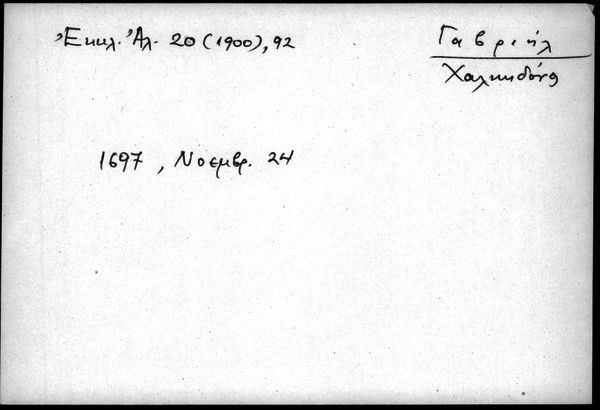 Ἐκκλ. Ἀλ. 20 (1900), 92
Γαβριήλ
Χαλκηδόνος
1697, Νοεμβρ. 24